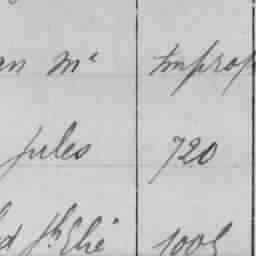 an Mc Improp
Jules 720
d Jh Elie 1005